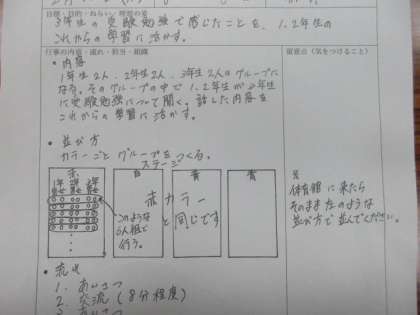 目標・目的・ねらい・理想の姿
3年生の受験勉強で感じたことを、1、2年生の
これからの学習に活かす。
行事の内容・流れ・担当・組織
留意点(気をつけること)
・内容
1年生2人、2年生2人、3年生2人のグループに
なる。そのグループの中で1、2年生が3年生
に受験勉強について聞く。話した内容を
これからの学習に活かす。
・並び方
カラーごと グループをつくる。
ステージ
赤
白
青
黄
1年 2年 3年
このような
6人組で
行う。
赤カラー
と
同じです
体育館に来たら
そのまま左のような
並び方で並んでください。
・流れ
1. あいさつ
2. 交流(8分程度)
3. あいさつ